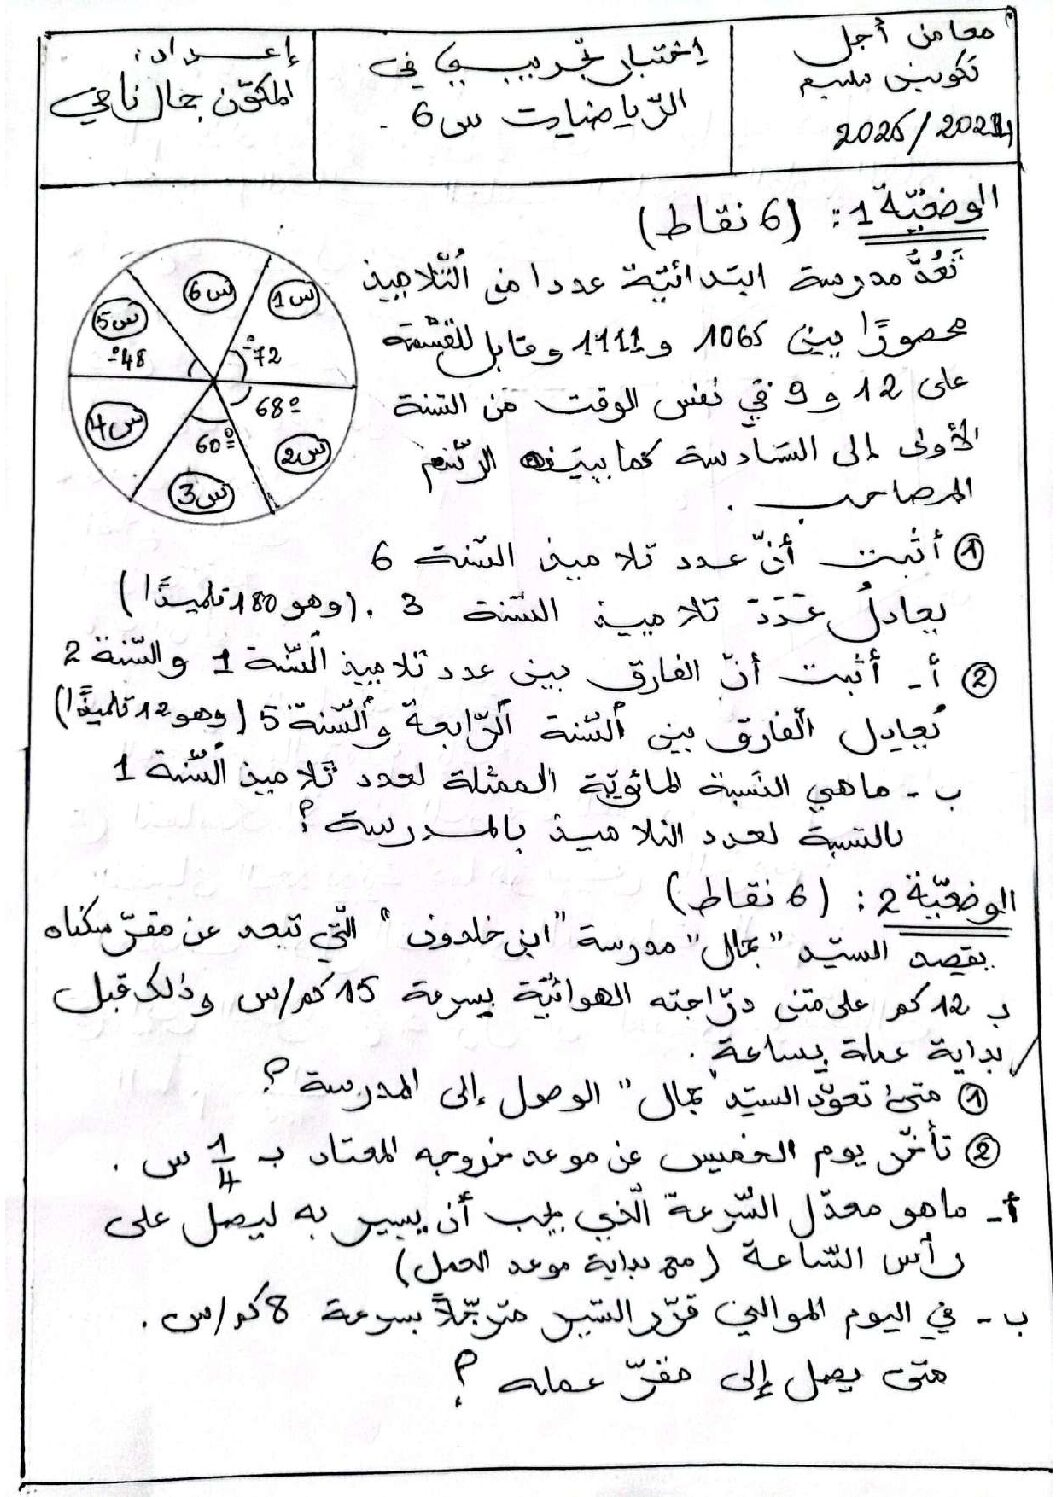 معا من أجل
تكوين سليم
2025/2024
إختبار تجريبي في
الرّياضيات س6.
إعداد:
المكوّن جمال ناجي
الوضعيّة 1: (6 نقاط)
تَعُدُّ مدرسة ابتدائيّة عددا من التّلاميذ
محصورًا بين 1065 و 1111 وقابل للقسمة
على 12 و 9 في نفس الوقت من السّنة
الأولى إلى السّادسة كما يبيّنه الرّسم
المصاحب.
س1
س6
س5
س4
س3
س2
72°
48°
68°
60°
① أثبت أنّ عدد تلاميذ السّنة 6
يعادلُ عَدَدَ تلاميذ السّنة 3. (وهو 180 تلميذًا)
② أ- أثبت أنّ الفارق بين عدد تلاميذ السّنة 1 والسّنة 2
يُعادل الفارق بين السّنة الرّابعة والسّنة 5 (وهو 12 تلميذًا)
ب- ماهي النّسبة المائويّة الممثلة لعدد تلاميذ السّنة 1
بالنسبة لعدد التلاميذ بالمدرسة؟
الوضعيّة 2: (6 نقاط)
يقصد السيّد "جمال" مدرسة "ابن خلدون" الّتي تبعد عن مقرّ سكناه
ب 12 كم على متن درّاجته الهوائيّة بسرعة 15 كم/س وذلك قبل
بداية عمله بساعة.
① متى تعوّد السيّد "جمال" الوصول إلى المدرسة؟
② تأخّر يوم الخميس عن موعد خروجه المعتاد ب 1/4 س.
أ- ماهو معدّل السّرعة الّذي يجب أن يسير به ليصل على
رأس السّاعة (مع بداية موعد العمل)
ب- في اليوم الموالي قرّر السّير مترجّلاً بسرعة 8 كم/س.
متى يصل إلى مقرّ عمله؟